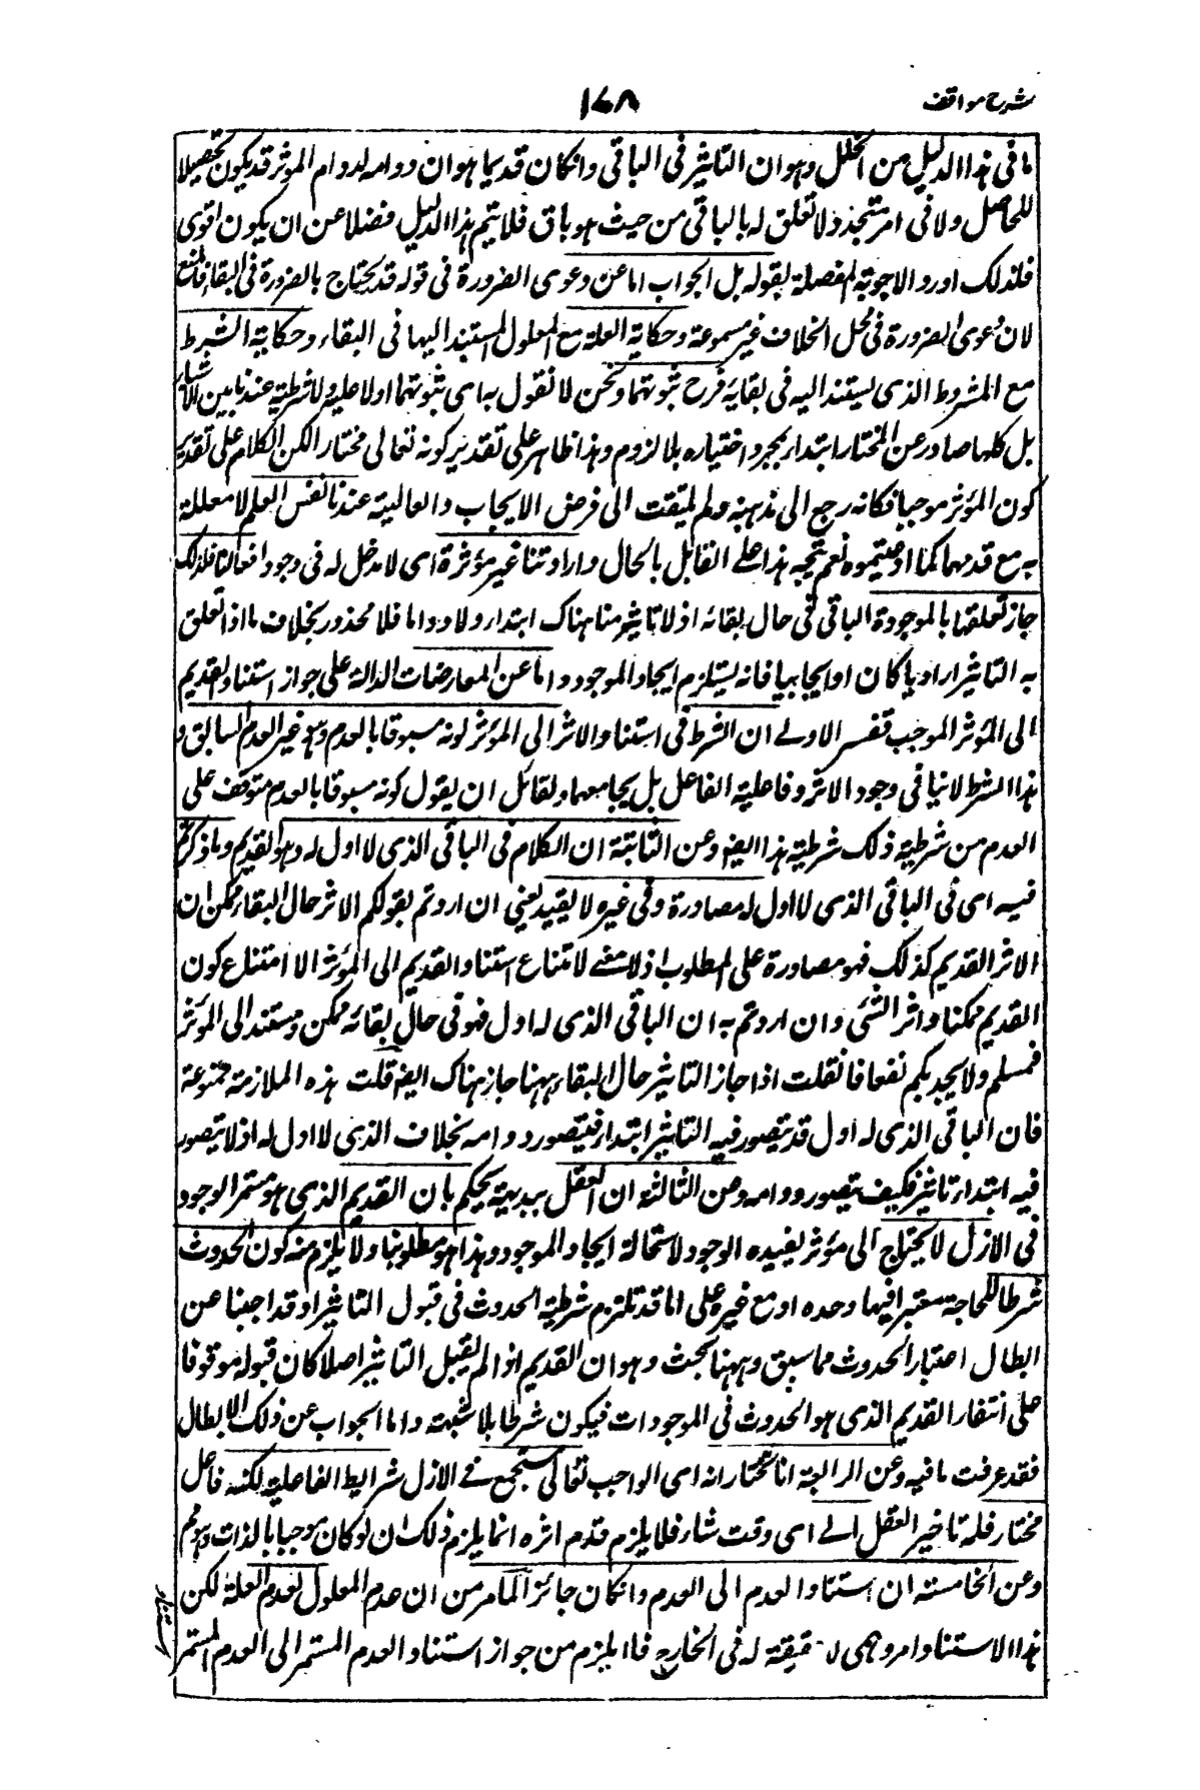 شرح مواقف
١٦٨
ما فى هذا الدليل من الخلل وهو ان التاثير فى الباقى وانكان قديما هو ان دوامه لدوام المؤثر قد يكون تحصيلا
للحاصل ولا فى امر متجدد لا تعلق له بالباقى من حيث هو باق فلا يتم هذا الدليل فضلا عن ان يكون اقوى
فلذلك اورد الاجوبة المفصلة بقوله بل الجواب اما عن دعوى الضرورة فى قوله قد يحتاج بالضرورة فى البقاء فالمنع
لان دعوى الضرورة فى محل الخلاف غير مسموعة وحكاية العلة مع المعلول المستند اليها فى البقاء وحكاية الشرط
مع المشروط الذى يستند اليه فى بقايه فرع ثبوتهما ونحن لا نقول به اى ثبوتهما اولا علية ولا شرطية عندنا بين الاشياء
بل كلها صادر عن المختار ابتداء بمجرد اختياره بلا لزوم وهذا ظاهر على تقدير كونه تعالى مختارا لكن الكلام على تقدير
كون المؤثر موجبا فكانه رجع الى مذهبه ولم يلتفت الى فرض الايجاب والعالمية عندنا نفس العلم لا معللة
به مع قدمهما كما ادعيتموه نعم يتجه هذا على القايل بالحال وارادتنا غير مؤثرة اى لا مدخل له فى وجود افعالنا فلذلك
جاز تعلقها بالموجودة الباقى فى حال بقائه اذ لا تاثير منا هناك ابتداء ولا دواما فلا محذور بخلاف ما اذا تعلق
به التاثير اراديا كان او ايجابيا فانه يستلزم ايجاد الموجود واما عن المعارضات الدالة على جواز استناد القديم
الى المؤثر الموجب فعن الاولى ان الشرط فى استناد الاثر الى المؤثر كونه مسبوقا بالعدم وهو غير العدم السابق و
هذا الشرط لا ينافى وجود الاثر وفاعلية الفاعل بل يجامعها ولقائل ان يقول كونه مسبوقا بالعدم متوقف على
العدم من شرطية ذلك شرطية هذا ايضا وعن الثانية ان الكلام فى الباقى الذى لا اول له وهو القديم وما ذكرتم
فيه اى فى الباقى الذى لا اول له مصادرة وفى غيره لا يفيد يعنى ان اردتم بقولكم الاثر حال البقاء ممكن ان
الاثر القديم كذلك فهو مصادرة على المطلوب اذ لا معنى لامتناع استناد القديم الى المؤثر الا امتناع كون
القديم ممكنا واثر الشئ وان اردتم به ان الباقى الذى له اول فهو فى حال بقائه ممكن ومستند الى المؤثر
فمسلم ولا يجديكم نفعا فان قلت اذا جاز التاثير حال البقاء ههنا جاز هناك ايضا قلت هذه الملازمة ممنوعة
فان الباقى الذى له اول قد يتصور فيه التاثير ابتداء فيتصور دوامه بخلاف الذى لا اول له اذ لا يتصور
فيه ابتداء تاثير فكيف يتصور دوامه وعن الثالثة ان العقل ببديهته يحكم بان القديم الذى هو مستمر الوجود
فى الازل لا يحتاج الى مؤثر يفيده الوجود لاستحالة ايجاد الموجود وهذا هو مطلوبنا ولا يلزم منه كون الحدوث
شرطا للحاجة معتبرا فيها وحده او مع غيره على انا قد نلتزم شرطية الحدوث فى قبول التاثير وقد اجبنا عن
ابطال اعتبار الحدوث مما سبق وههنا بحث وهو ان القديم اذا لم يقبل التاثير اصلا كان قبوله موقوفا
على انتفاء القديم الذى هو الحدوث فى الموجودات فيكون شرطا بلا شبهة واما الجواب عن ذلك الابطال
فقد عرفت ما فيه وعن الرابعة انا نختار انه اى الواجب تعالى مستجمع فى الازل شرايط الفاعلية لكنه فاعل
مختار فله تاخير الفعل الى اى وقت شاء فلا يلزم قدم اثره انما يلزم ذلك ان لو كان موجبا بالذات وهو مم
وعن الخامسة ان استناد العدم الى العدم وانكان جائزا لما مر من ان عدم المعلول لعدم العلة لكن
هذا الاستناد امر وهمى لا حقيقة له فى الخارج فلا يلزم من جواز استناد العدم المستمر الى العدم المستمر
استناد